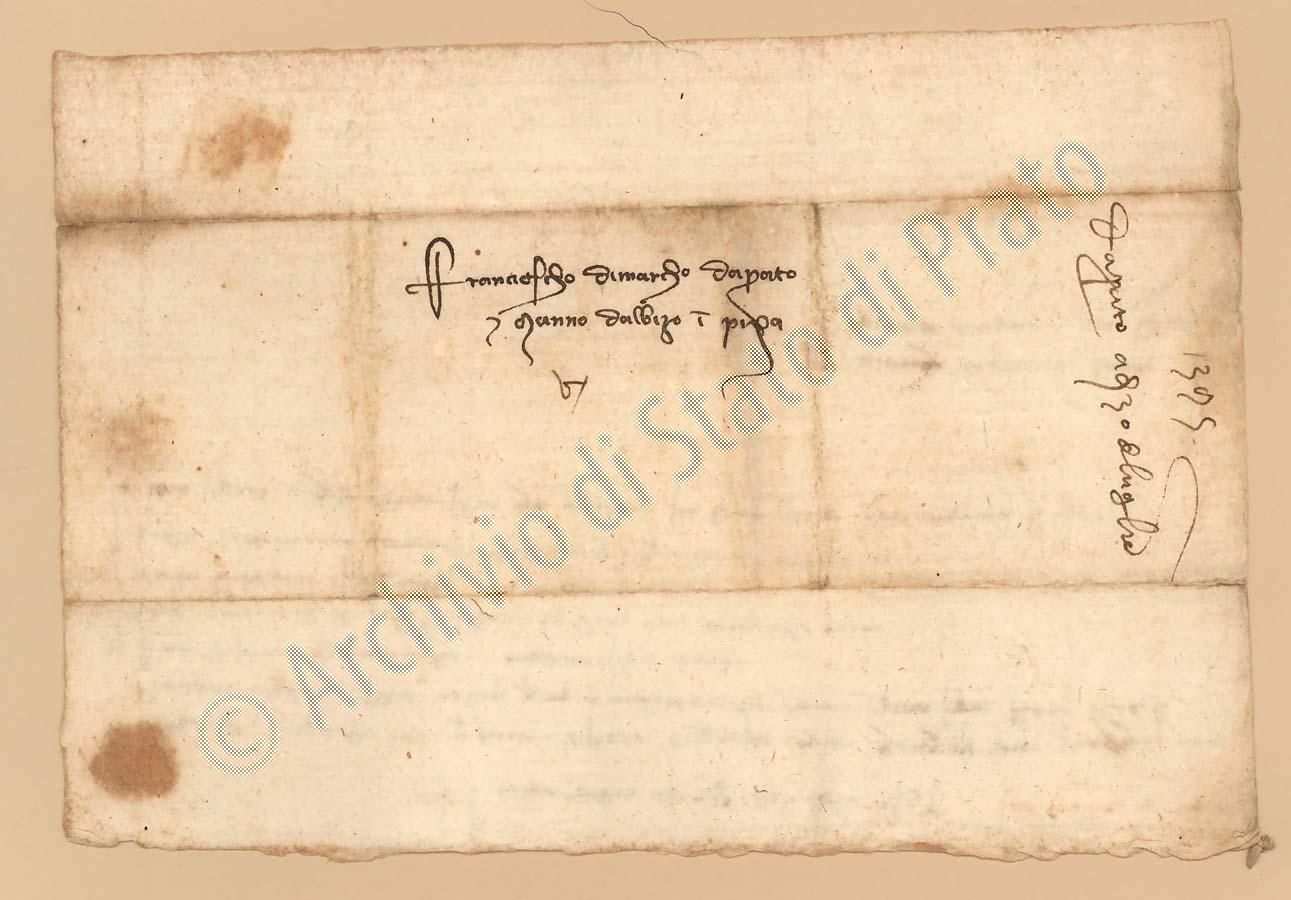 Franciescho dimarcho daprato
⁊ Manno dalbizo ī pisa
1395
da prato adi 30 di luglio
© Archivio di Stato di Prato